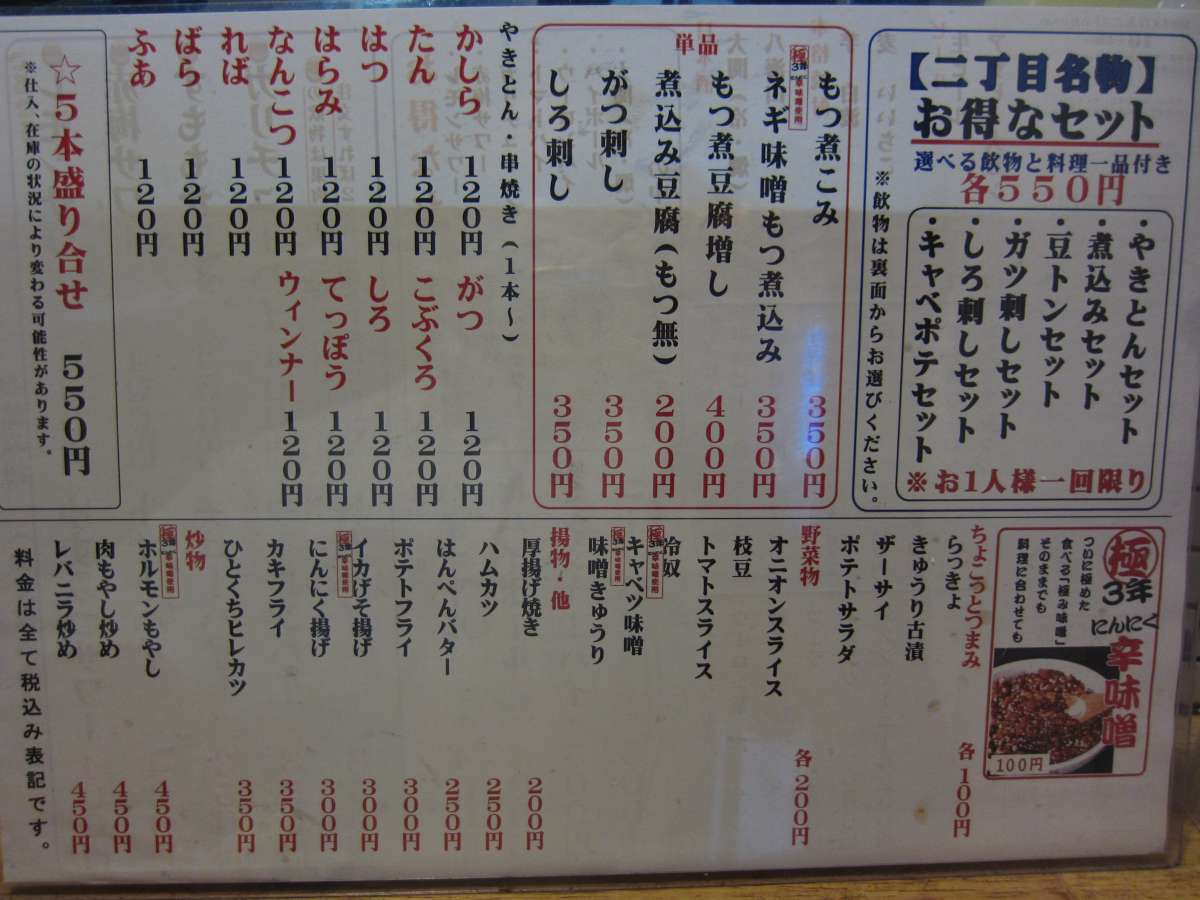 【二丁目名物】
お得なセット
選べる飲物と料理一品付き
各550円
・やきとんセット
・煮込みセット
・豆トンセット
・ガツ刺しセット
・しろ刺しセット
・キャベポテセット
※お1人様一回限り
※飲物は裏面からお選びください。
もつ煮こみ 350円
極3年辛味噌使用
ネギ味噌もつ煮込み 350円
単品
もつ煮、豆腐増し 400円
煮込み豆腐(もつ無) 200円
がつ刺し 350円
しろ刺し 350円
やきとん・串焼き(1本〜)
かしら 120円
がつ 120円
たん 120円
こぶくろ 120円
はつ 120円
しろ 120円
はらみ 120円
てっぽう 120円
なんこつ 120円
ウィンナー 120円
れば 120円
ばら 120円
ふあ 120円
☆5本盛り合せ 550円
※仕入、在庫の状況により変わる可能性があります。
極3年
にんにく
辛味噌
ついに極めた
食べる「極み味噌」
そのままでも
料理に合わせても
100円
ちょこっとつまみ 各100円
らっきょ
きゅうり古漬
ザーサイ
ポテトサラダ
野菜物 各200円
オニオンスライス
枝豆
トマトスライス
冷奴
キャベツ味噌
味噌きゅうり
揚物・他
厚揚げ焼き 200円
ハムカツ 250円
はんぺんバター 250円
ポテトフライ 300円
イカげそ揚げ 300円
にんにく揚げ 300円
カキフライ 350円
ひとくちヒレカツ 350円
炒物
極3年辛味噌使用
ホルモンもやし 450円
肉もやし炒め 450円
レバニラ炒め 450円
料金は全て税込み表記です。